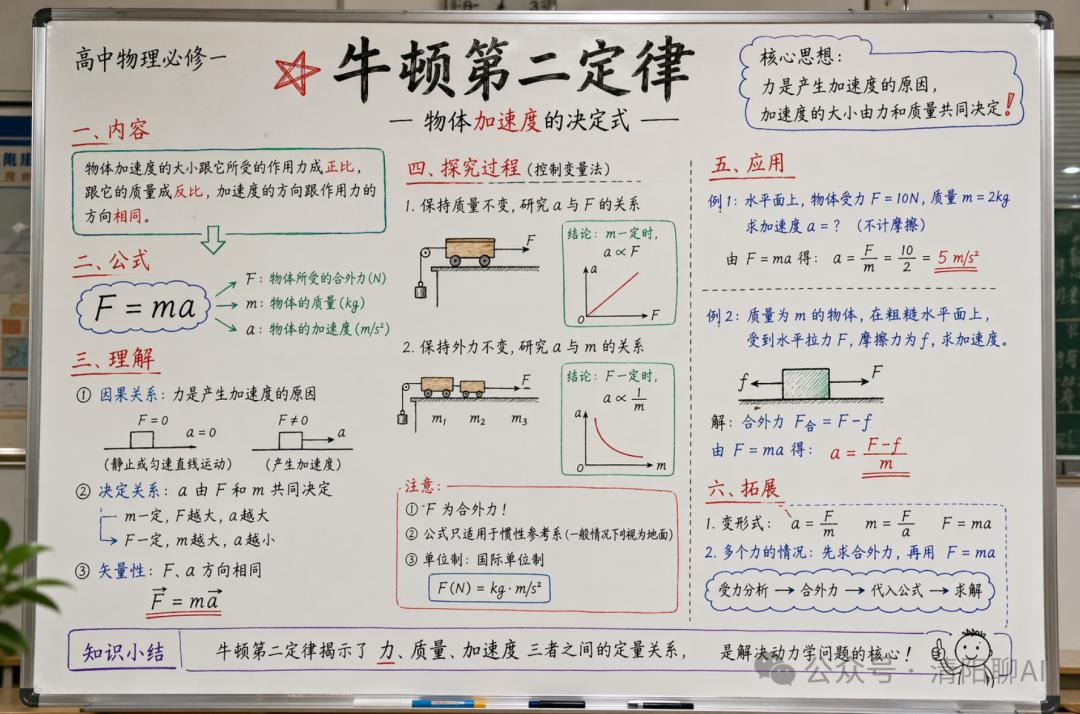 高中物理必修一
牛顿第二定律
— 物体加速度的决定式 —
核心思想：
力是产生加速度的原因，
加速度的大小由力和质量共同决定！
一、内容
物体加速度的大小跟它所受的作用力成正比，
跟它的质量成反比，加速度的方向跟作用力的
方向相同。
二、公式
F = ma
F：物体所受的合外力(N)
m：物体的质量(kg)
a：物体的加速度(m/s²)
三、理解
① 因果关系：力是产生加速度的原因
F = 0
a = 0
(静止或匀速直线运动)
F ≠ 0
a
(产生加速度)
② 决定关系：a 由 F 和 m 共同决定
m一定，F越大，a越大
F一定，m越大，a越小
③ 矢量性：F、a 方向相同
F⃗ = ma⃗
四、探究过程 (控制变量法)
1. 保持质量不变，研究 a 与 F 的关系
F
结论：m一定时，
a ∝ F
a
O
F
2. 保持外力不变，研究 a 与 m 的关系
F
m₁ m₂ m₃
结论：F一定时，
a ∝ 1/m
a
O
m
注意：
① F 为合外力！
② 公式只适用于惯性参考系(一般情况下可视为地面)
③ 单位制：国际单位制
F(N) = kg·m/s²
五、应用
例1：水平面上，物体受力 F = 10N，质量 m = 2kg
求加速度 a = ？ (不计摩擦)
由 F = ma 得： a = F/m = 10/2 = 5 m/s²
例2：质量为 m 的物体，在粗糙水平面上，
受到水平拉力 F，摩擦力为 f，求加速度。
f
F
解：合外力 F合 = F - f
由 F = ma 得： a = F-f/m
六、拓展
1. 变形式： a = F/m m = F/a F = ma
2. 多个力的情况：先求合外力，再用 F = ma
受力分析 → 合外力 → 代入公式 → 求解
知识小结
牛顿第二定律揭示了 力、质量、加速度 三者之间的定量关系， 是解决动力学问题的核心！
公众号 · 清阳聊AI